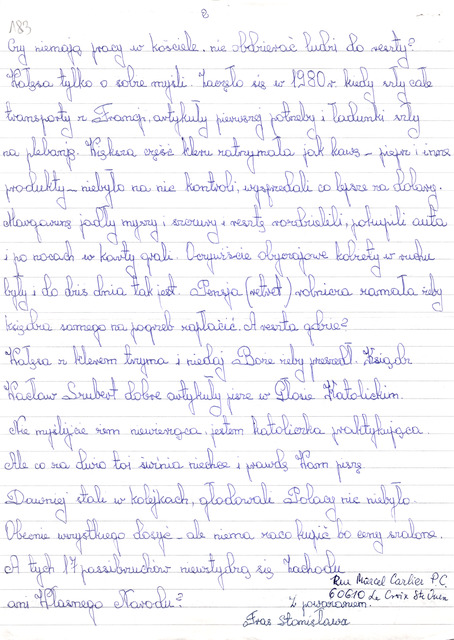 183
2
Czy niemają pracy w kościele, nie obdzierać ludzi do reszty?
Wałęsa tylko o sobie myśli. Zaczęło się w 1980 r. kiedy szły całe
transporty z Francji, artykuły pierwszej potrzeby i ładunki szły
na plebanję. Większa część kleru zatrzymała jak kawę – pieprz i inne
produkty – niebyło na nie kontroli, wysprzedali co lepsze za dolary.
Margarynę jadły myszy i szczury i resztę rozdzielili, pokupili auta
i po nocach w karty grali. Oczywiście obyczajowe kobiety w ruchu
były i do dziś dnia tak jest. Pensja (retret) robnicza zamała żeby
księdza samego na pogrzeb zapłacić. A reszta gdzie?
Wałęsa z klerem trzyma i niedaj Boże żeby przeszedł. Ksiądz
Wacław Szubert dobre artykuły pisze w Głosie Katolickim.
Nie myślijcie żem niewierząca, jestem katoliczka praktykująca.
Ale co za dużo to i świnia niechce i prawdę Wam piszę.
Dawniej stali w kolejkach, głodowali Polacy nic niebyło.
Obecnie wszystkiego dosyć – ale niema zaco kupić bo ceny szalone.
A tych 17 passibruchów niewstydzą się Zachodu
ani Własnego Narodu?
Rue Marcel Carlier P.C.
60610 La Croix St Ouen
Z poważaniem.
Fras Stanisława